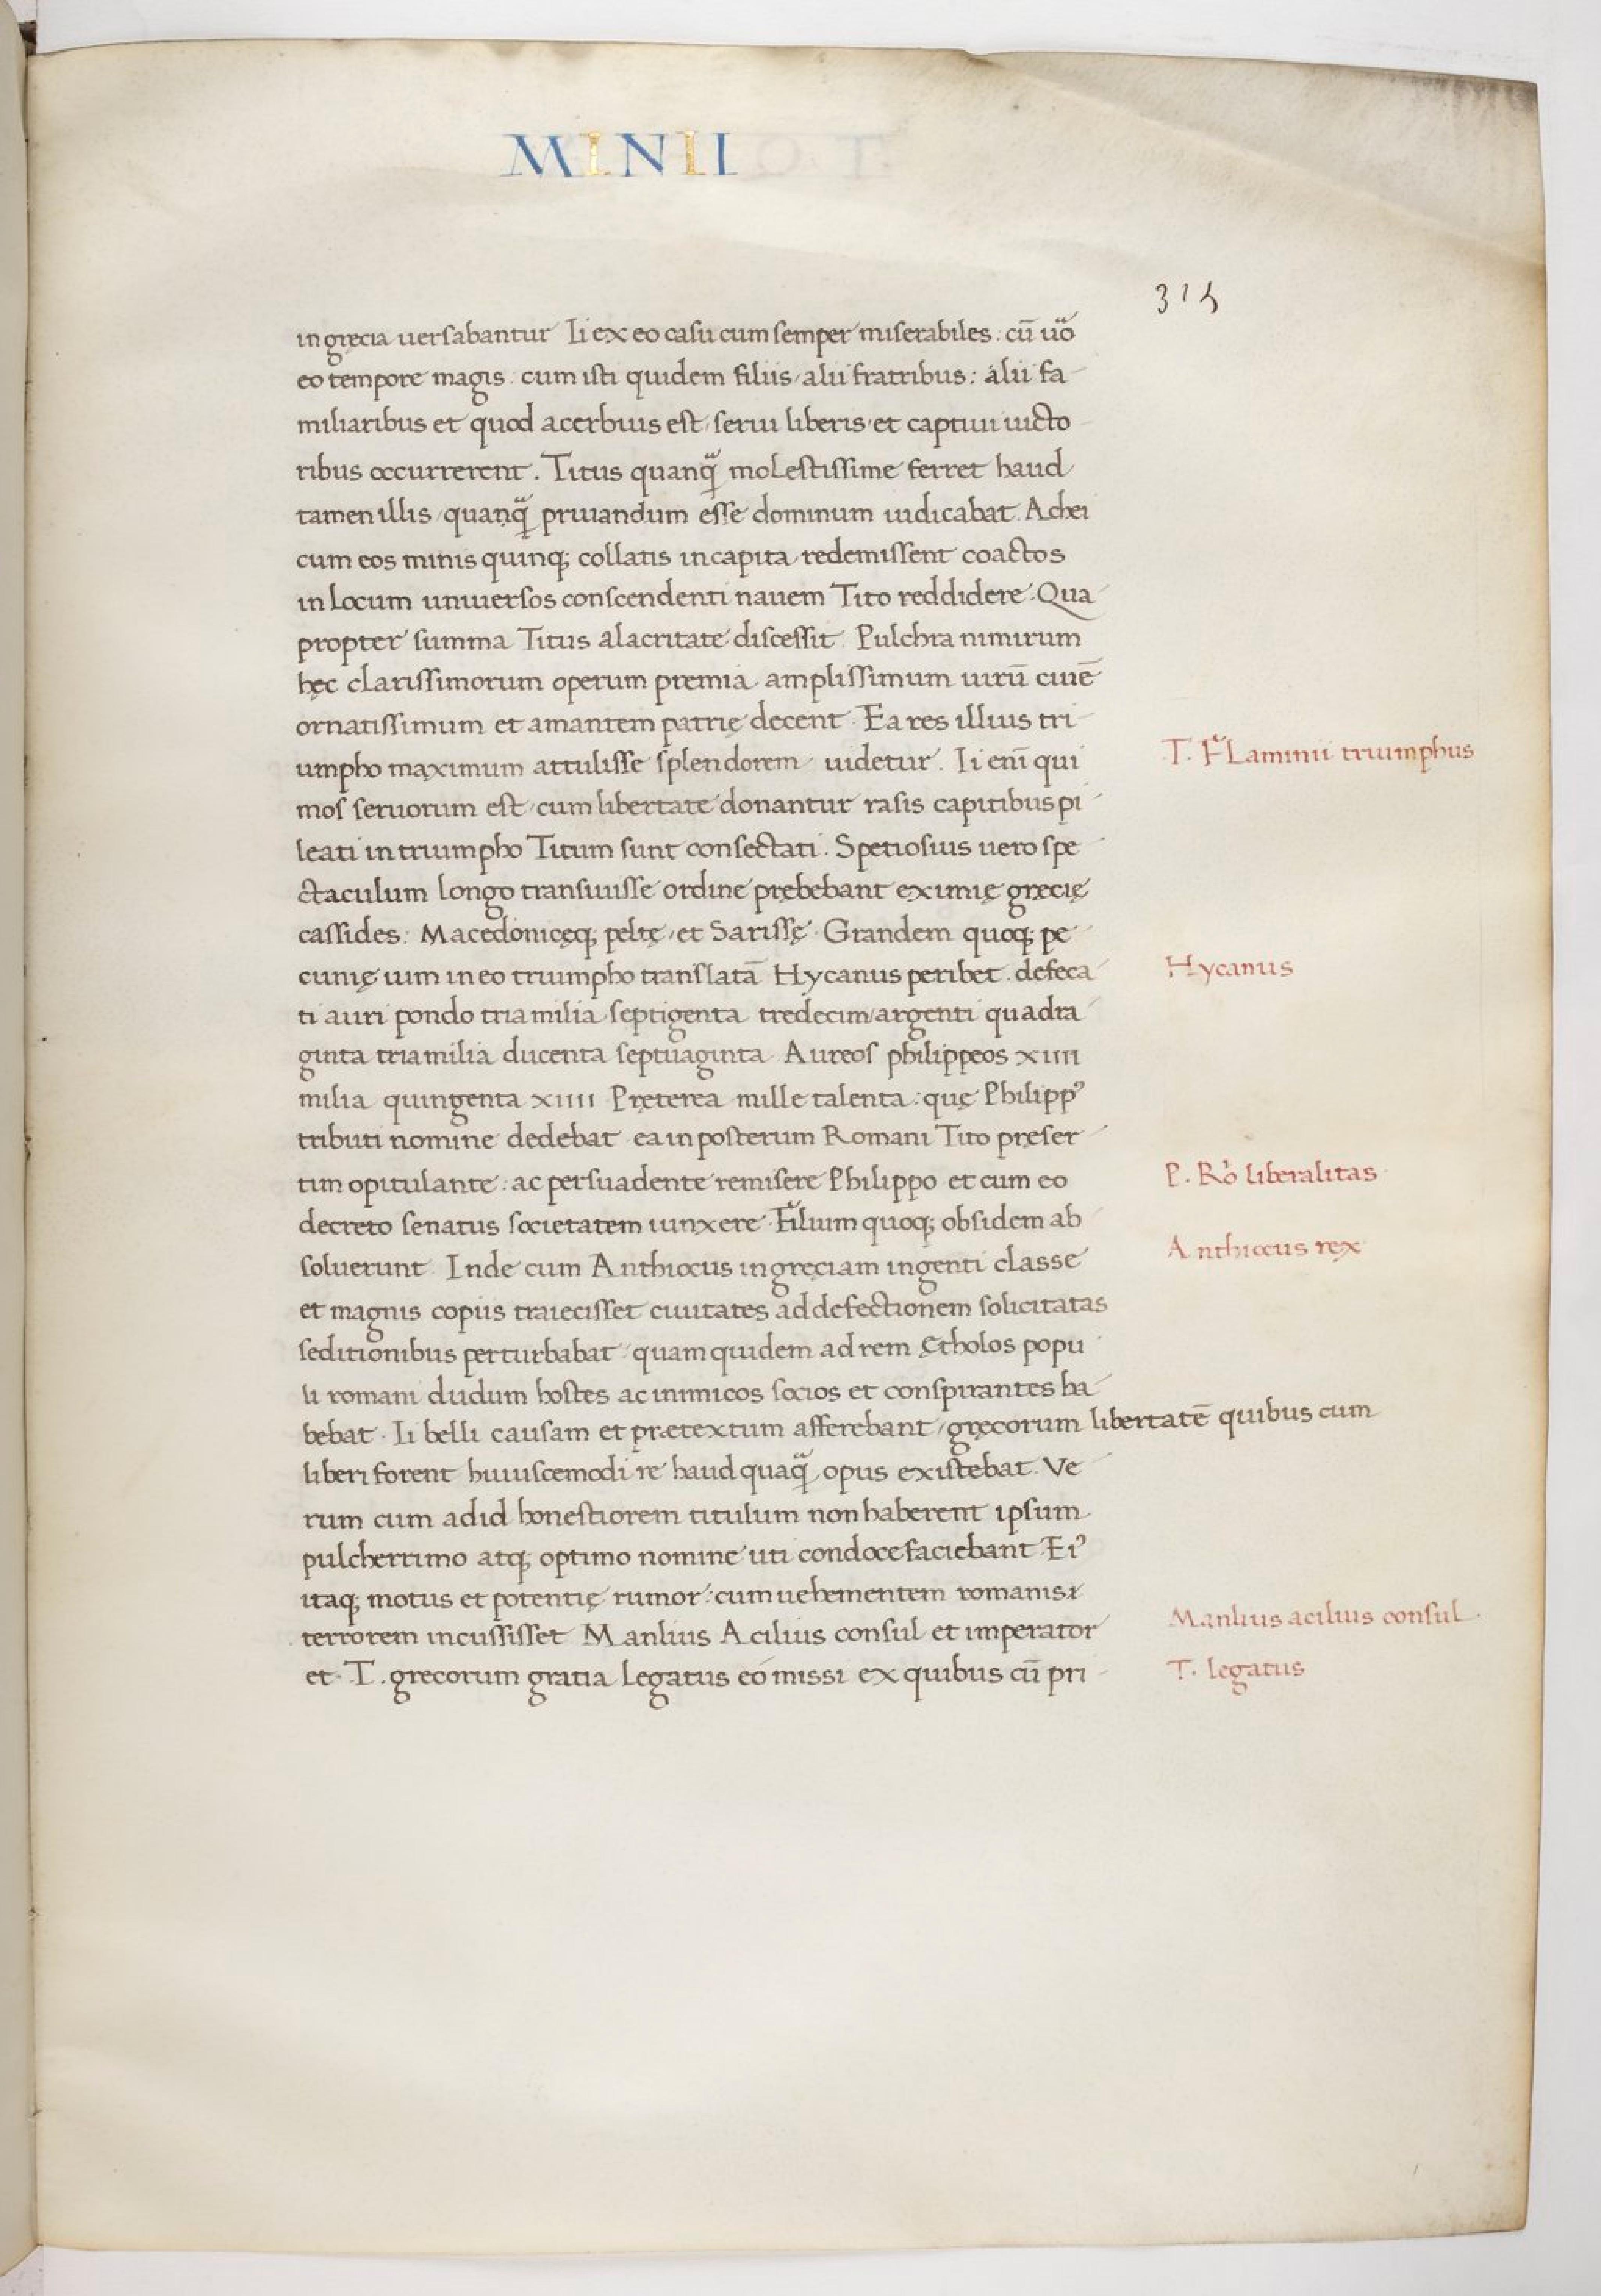 MINII
315
in gręcia uersabantur Ii ex eo casu cum semper miserabiles. cū uo
eo tempore magis. cum isti quidem filiis, alii fratribus: alii fa-
miliaribus et quod acerbius est, serui liberis, et captiui uicto
ribus occurrerent. Titus quanq̃ molestissime ferret haud
tamen illis, quanq̃ priuandum esse dominum iudicabat. Achei
cum eos minis quinq; collatis in capita redemissent coactos
in locum uniuersos conscendenti nauem Tito reddidere. Qua
propter summa Titus alacritate discessit. Pulchra nimirum
hęc clarissimorum operum premia amplissimum uirū ciuē
ornatissimum et amantem patrię decent. Ea res illius tri-
umpho maximum attulisse splendorem uidetur. Ii enī qui
T. Flaminii triumphus
mos seruorum est, cum libertate donantur rasis capitibus pi-
leati in triumpho Titum sunt consectati. Spetiosius uero spe
ctaculum longo transiuisse ordine prębebant eximię gręcię
cassides: Macedonicęq; peltę, et Sarissę. Grandem quoq; pe
cunię uim in eo triumpho translatā Hycanus peribet. defeca
Hycanus
ti auri pondo tria milia septigenta tredecim, argenti quadra
ginta tria milia ducenta septuaginta. Aureos philippeos xiiii
milia quingenta xiiii Pręterea mille talenta: quę Philipp9
tributi nomine dedebat ea in posterum Romani Tito pręser-
tim opitulante: ac persuadente remisere Philippo et cum eo
P. Ro liberalitas
decreto senatus societatem iunxere. Filium quoq; obsidem ab
soluerunt. Inde cum Anthiocus in gręciam ingenti classe
Anthiocus rex
et magnis copiis traiecisset ciuitates ad defectionem solicitatas
seditionibus perturbabat. quam quidem ad rem Ętholos popu
li romani dudum hostes ac inimicos socios et conspirantes ha-
bebat. Ii belli causam et prætextum afferebant, gręcorum libertatē quibus cum
liberi forent huiuscemodi re haud quaq̃ opus existebat. Ve
rum cum ad id honestiorem titulum non haberent ipsum
pulcherrimo atq; optimo nomine uti condocefaciebant. Ei9
itaq; motus et potentię rumor: cum uehementem romanis
terrorem incussisset Manlius Acilius consul et imperator
Manlius acilius consul.
et. T. grecorum gratia legatus eo missi ex quibus cū pri-
T. legatus